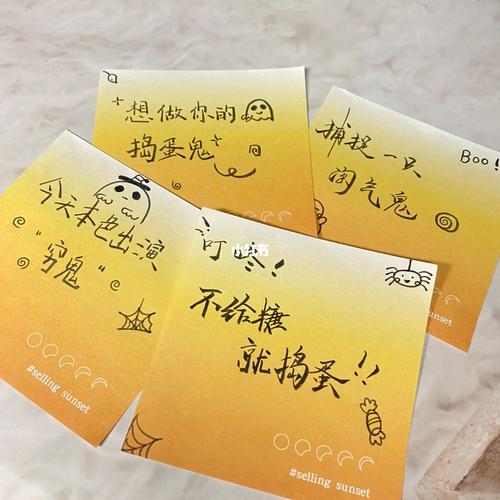 想做你的
捣蛋鬼
捕捉一只
淘气鬼
Boo!
今天本色出演
“穷鬼”
#selling sunset
叮咚!
不给糖
就捣蛋!!
#selling sunset
sunset
小红书